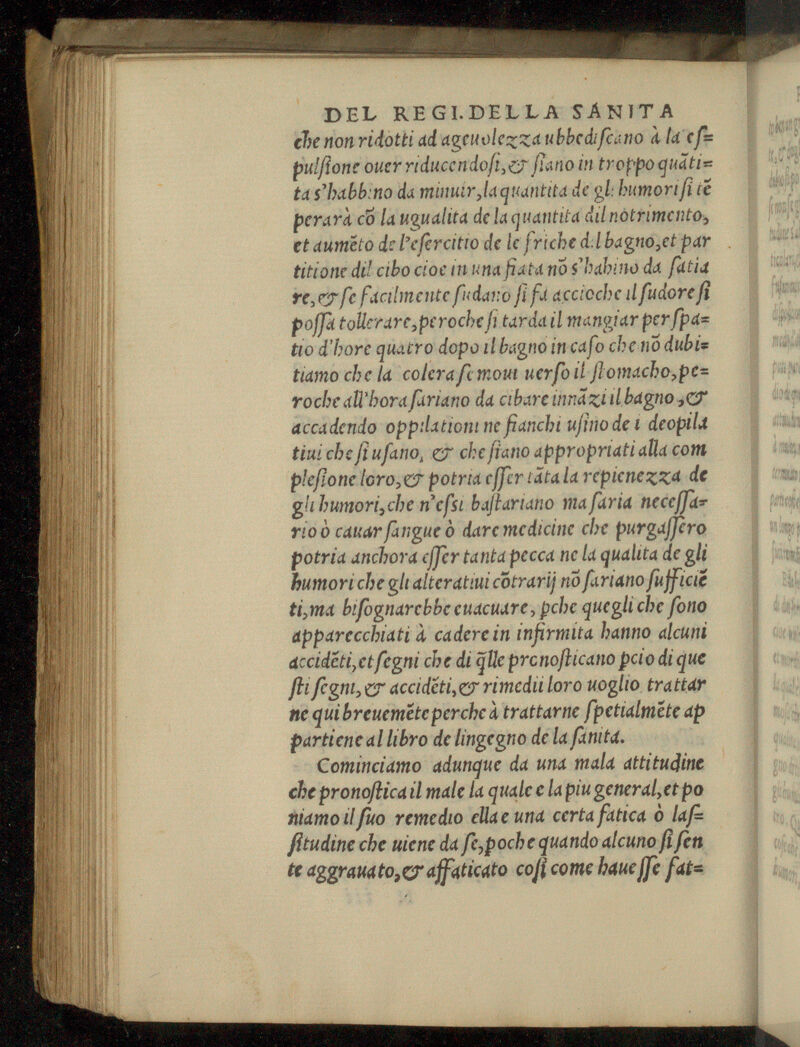 DEL REGI. DELLA SANITA
che non ridotti ad ageuolezza ubbediſcano à la eſ=
pulſione ouer riducendoſi, & ſiano in troppo quãti=
ta s'habbino da minuir, la quantita de gli humori ſi tẽ
perarà cõ la ugualita de la quantita dil notrimento,
et aumẽto de l'eſercitio de le friche dil bagno, et par
titione dil cibo cioe in una fiata nõ s'habino da ſatia
re, & ſe facilmente ſudano ſi fa accioche il ſudore ſi
poſſa tollerare, peroche ſi tarda il mangiar per ſpa=
tio d'hore quatro dopo il bagno in caſo che nõ dubi=
tiamo che la colera ſe moui uerſo il ſtomacho, pe=
roche all'hora ſariano da cibare innãzi il bagno, &
accadendo oppilationi ne fianchi uſino de i deopila
tiui che ſi uſano, & che ſiano appropriati alla com
pleſione loro, & potria eſſer tãta la repienezza de
gli humori, che n'eſsi baſtariano ma ſaria neceſſa=
rio ò cauar ſangue ò dare medicine che purgaſſero
potria anchora eſſer tanta pecca ne la qualita de gli
humori che gli alteratiui cõtrarij nõ ſariano ſufficiẽ
ti, ma biſognarebbe euacuare, pche quegli che ſono
apparecchiati à cadere in infirmita hanno alcuni
accidẽti, et ſegni che di q̃lle prenoſticano pcio di que
ſti ſegni, & accidẽti, & rimedii loro uoglio trattar
ne qui breuemẽte perche à trattarne ſpetialmẽte ap
partiene al libro de lingegno de la ſanita.
Cominciamo adunque da una mala attitudine
che pronoſtica il male la quale e la piu general, et po
niamo il ſuo remedio ella e una certa fatica ò laſ=
ſitudine che uiene da ſe, poche quando alcuno ſi ſen
te aggrauato, & affaticato coſi come haueſſe fat=